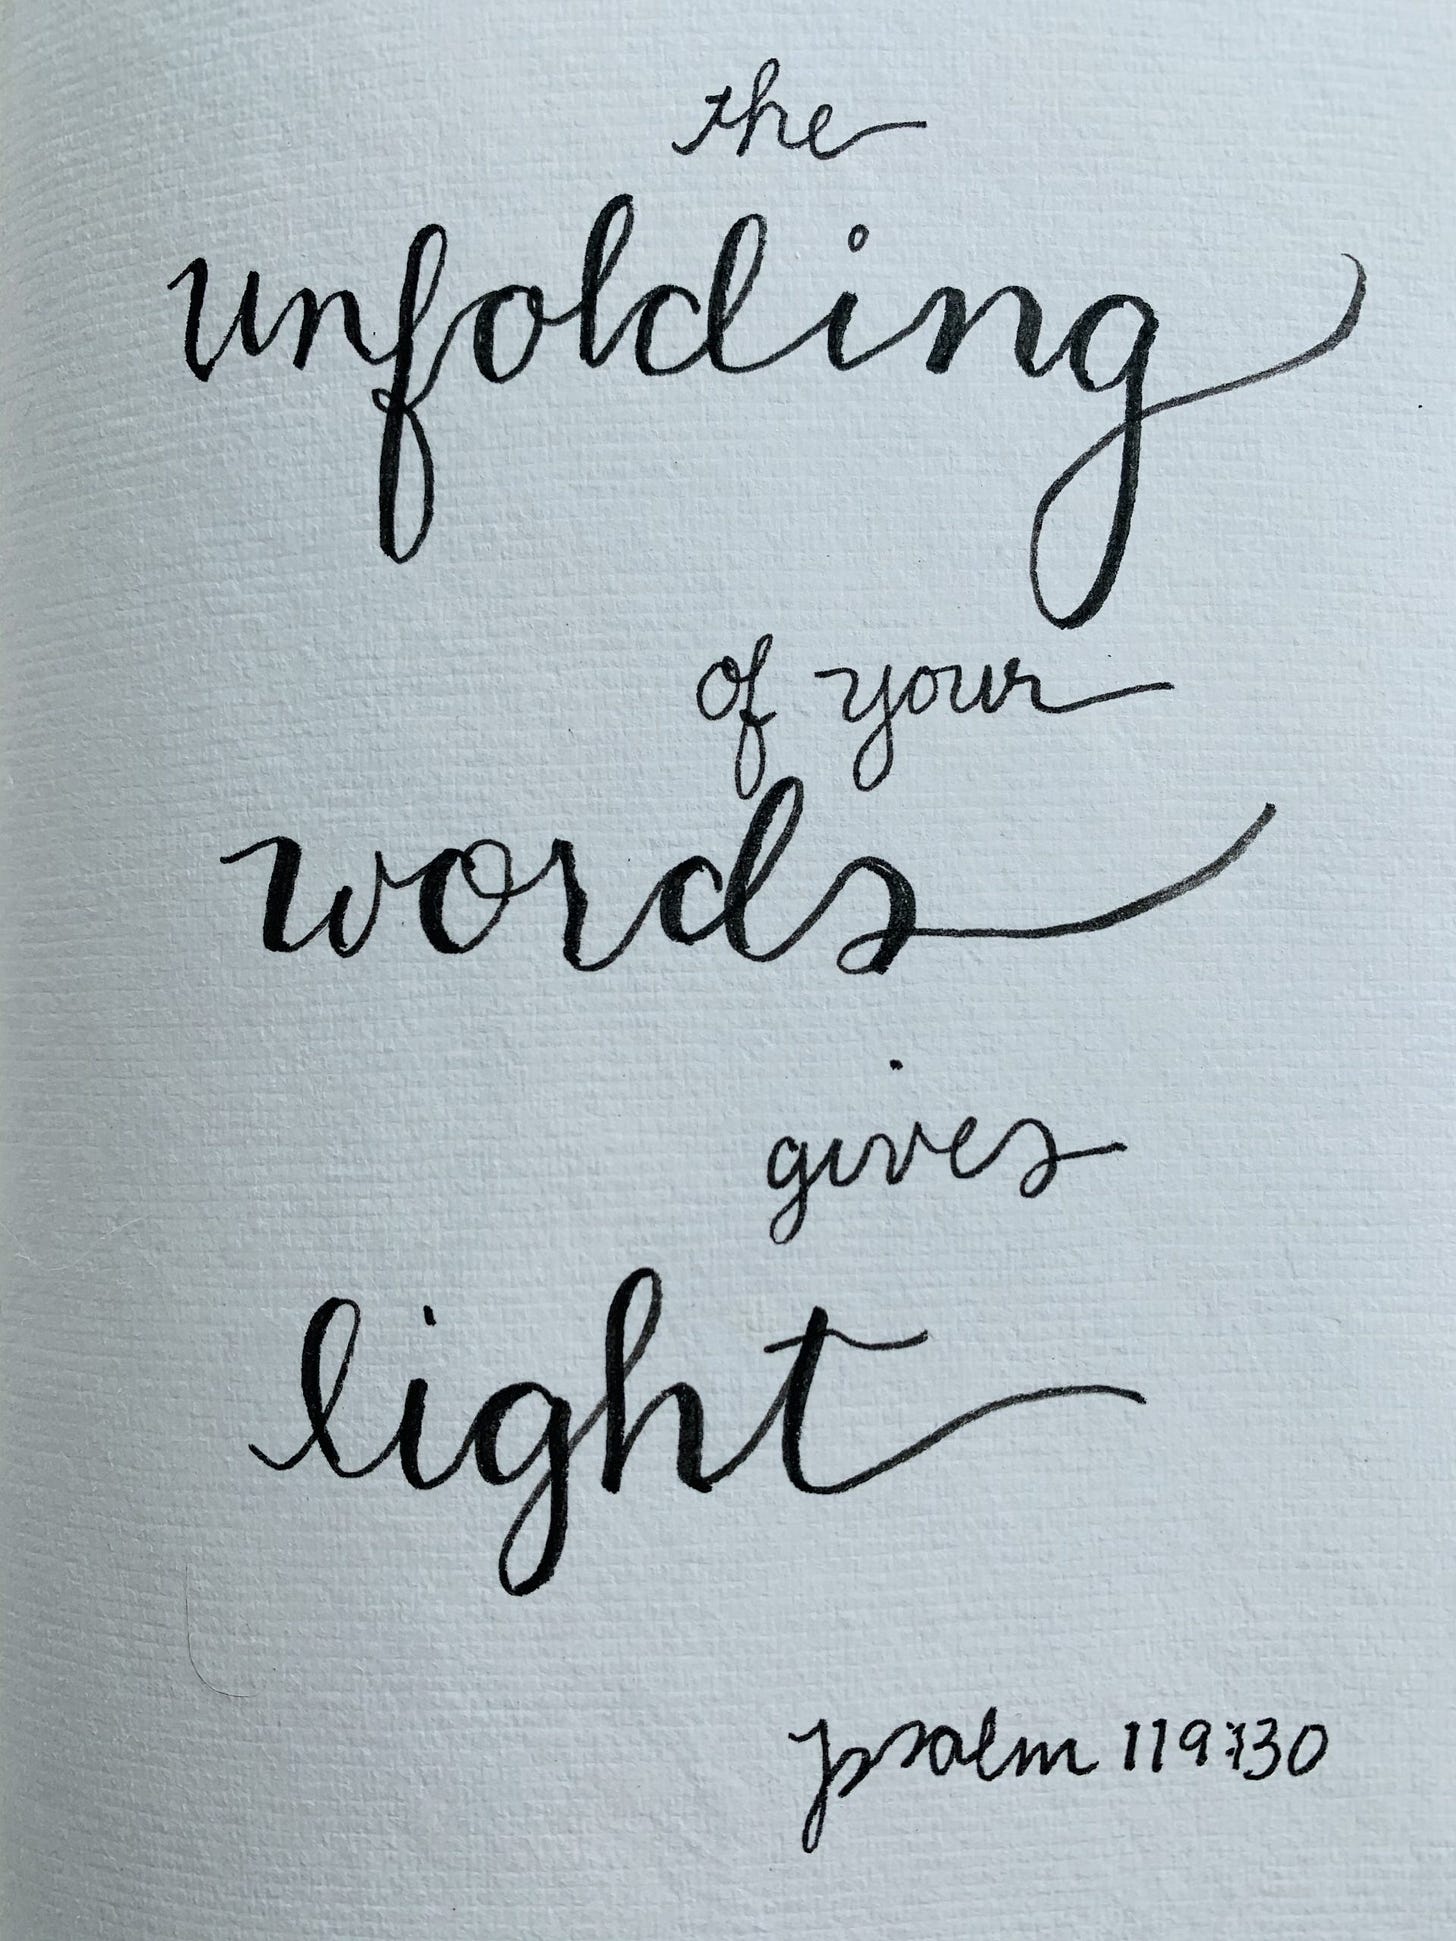 the
unfolding
of your
words
gives
light
psalm 119:130